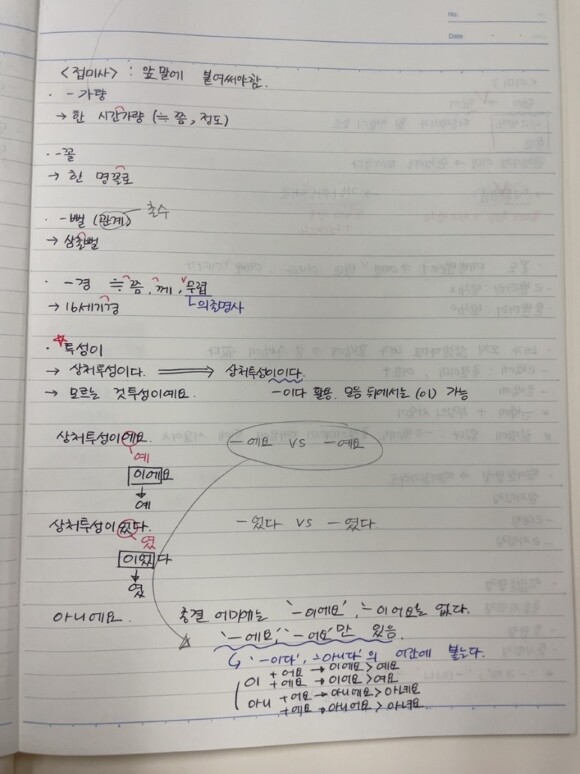 No.
Date
<접미사> : 앞말에 붙여써야함.
· -가량
→ 한 시간가량 (≒ 쯤, 정도)
· -꼴
→ 한 명꼴로
· -뻘 (관계) 촌수
→ 삼촌뻘
· -경 ≒ 쯤, 께, 무렵
→ 16세기경 의존명사
· 투성이
→ 상처투성이다. ⟹ 상처투성이이다.
→ 모르는 것투성이예요. -이다 활용. 모음 뒤에서는 (이) 가능
상처투성이에요. -에요 vs -예요
예
이에요
↓
예
상처투성이었다. -었다 vs -였다
였
이었다
↓
였
아니에요. 종결 어미에는 '-이에요', '-이어요'는 없다.
☆ '-에요', '-어요'만 있음.
↳ '-이다', '-아니다'의 어간에 붙는다.
이 + 어요 → 이에요 > 예요
+ 에요 → 이어요 > 여요
아니 + 어요 → 아니에요 > 아녜요
+ 에요 → 아니어요 > 아녀요